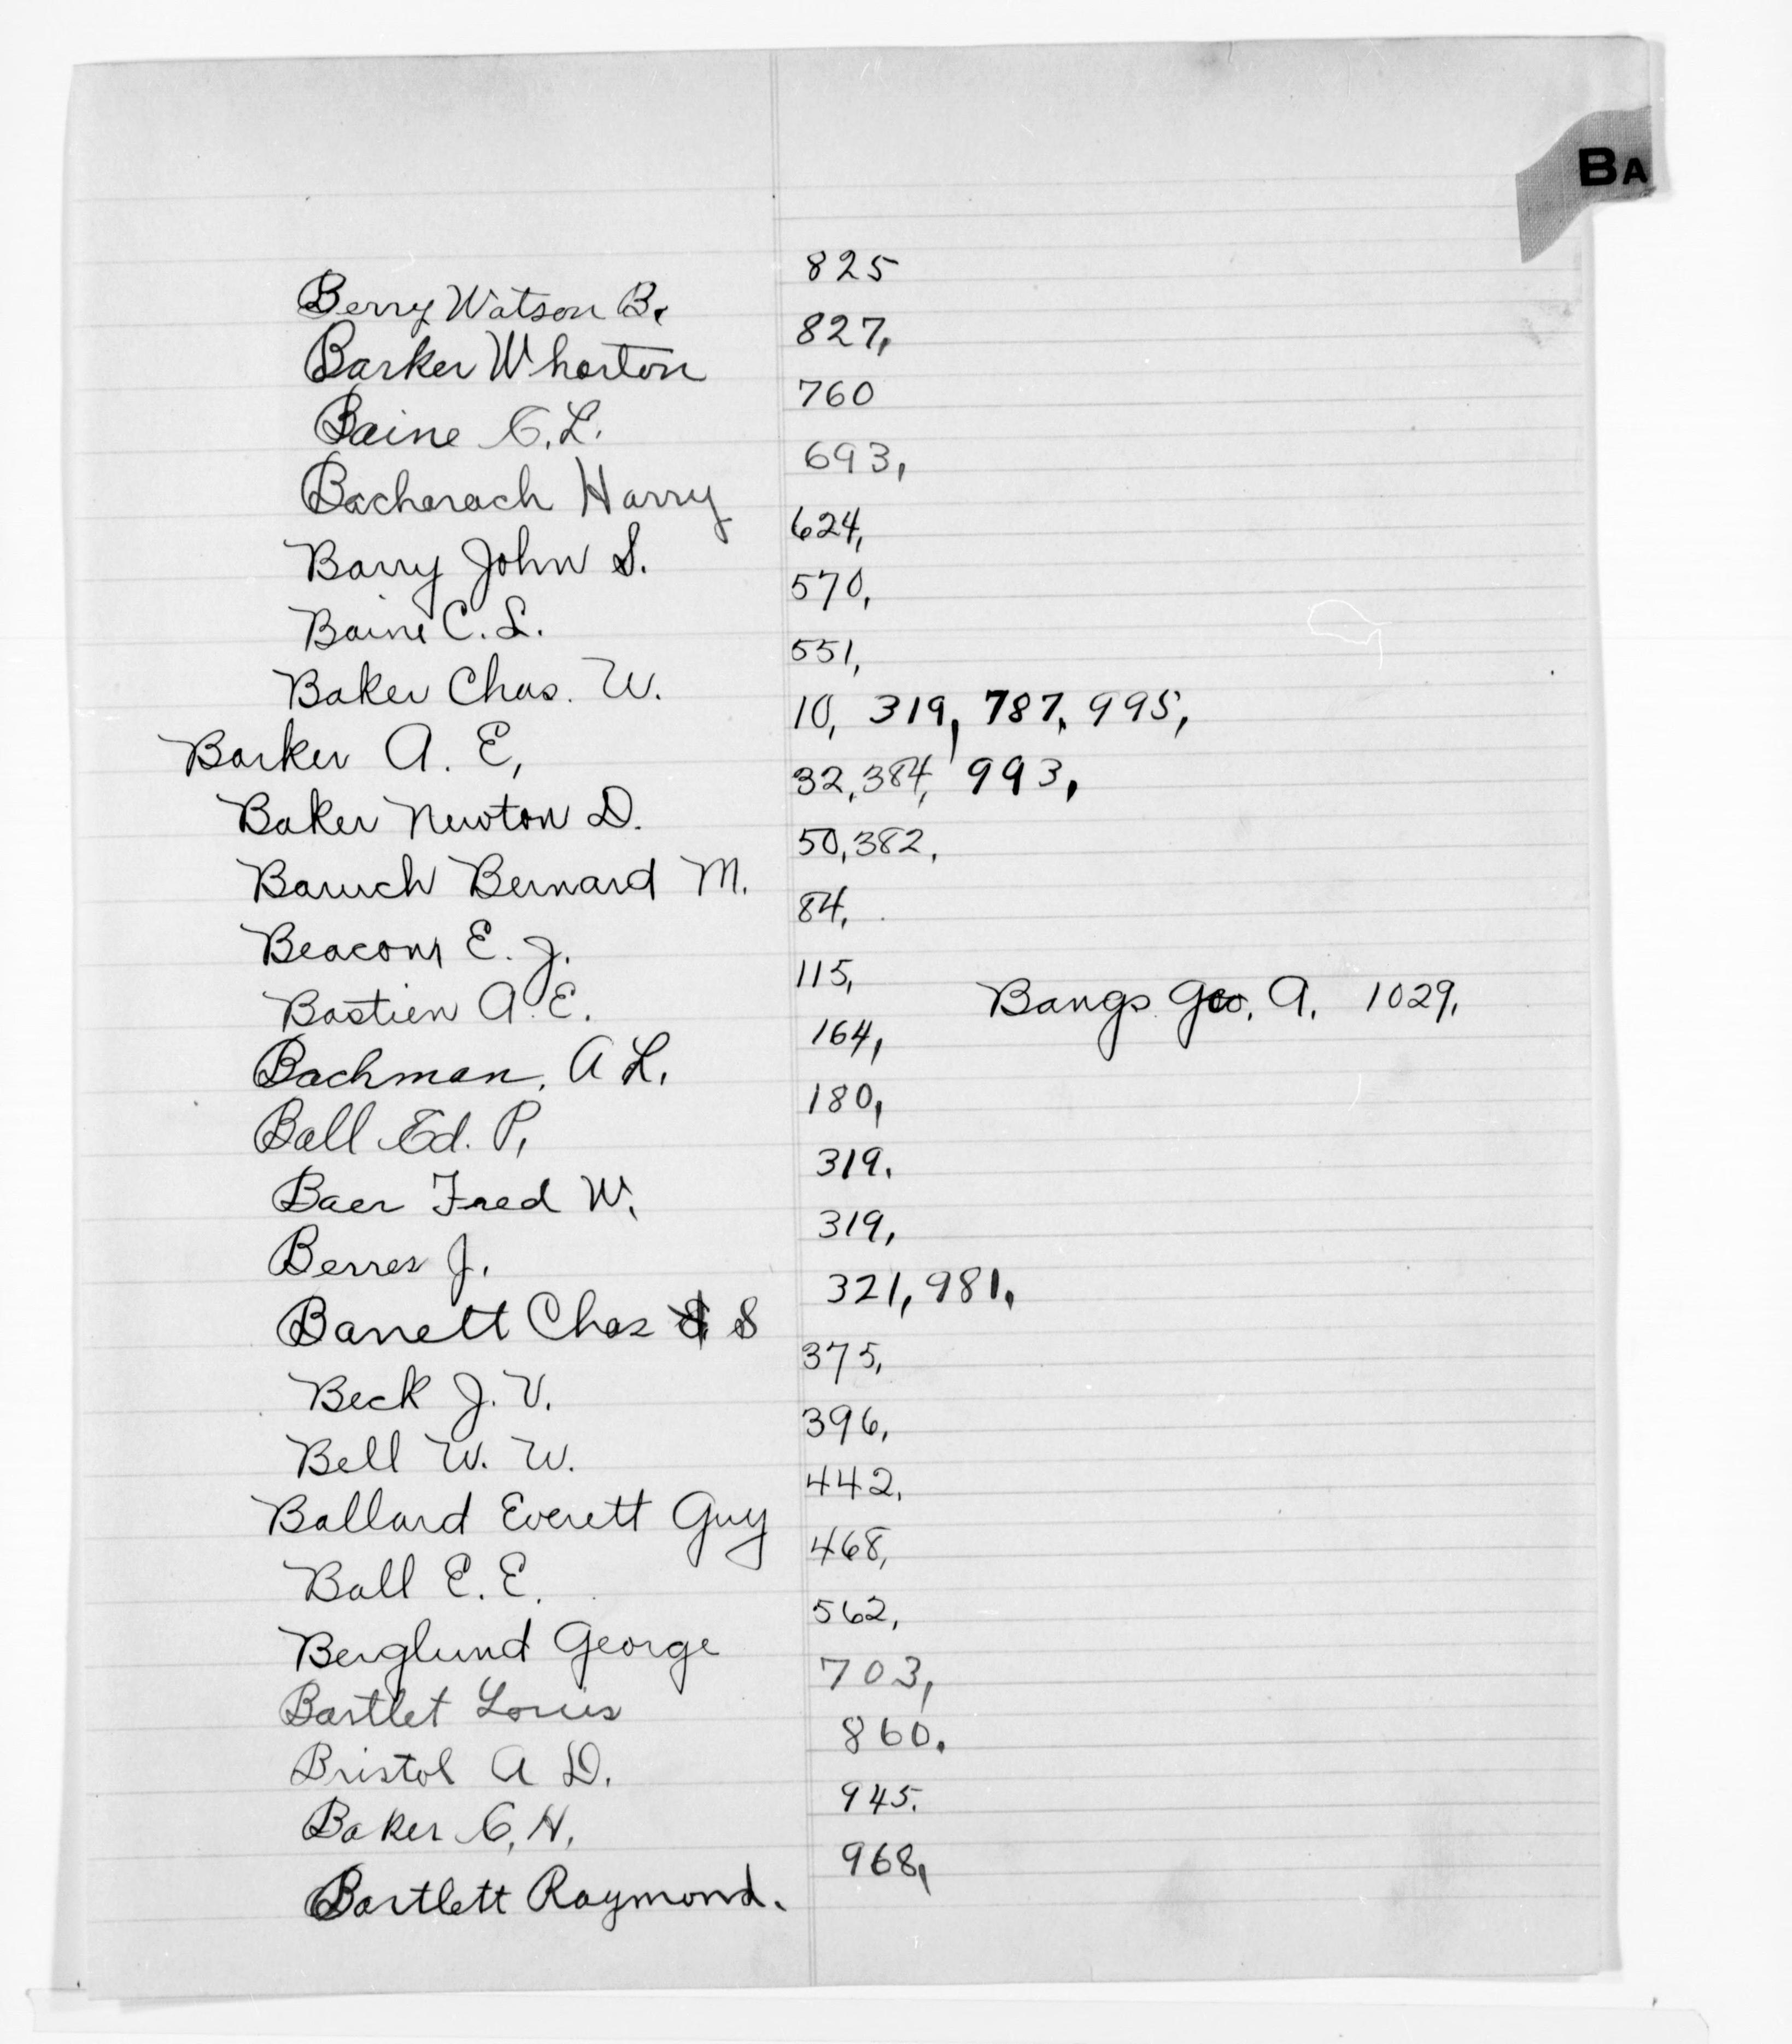 BA
Berry Watson B. 825
Barker Wharton 827,
Baine C. L. 760
Bacharach Harry 693,
Barry John S. 624,
Baine C. L. 570,
Baker Chas. W. 551,
Barker A. E, 10, 319, 787, 995,
Baker Newton D. 32, 384, 993,
Baruch Bernard M. 50, 382,
Beacom E. J. 84,
Bastien A. E. 115,
Bangs Geo. A. 1029,
Bachman, A L. 164,
Ball Ed. P, 180,
Baer Fred W. 319.
Berres J. 319,
Barrett Chas S 321, 981,
Beck J. V. 375,
Bell W. W. 396,
Ballard Everett Guy 442,
Ball E. E. 468,
Berglund George 562,
Bartlet Louis 703,
Bristol A D. 860.
Baker C. H. 945.
Bartlett Raymond. 968,